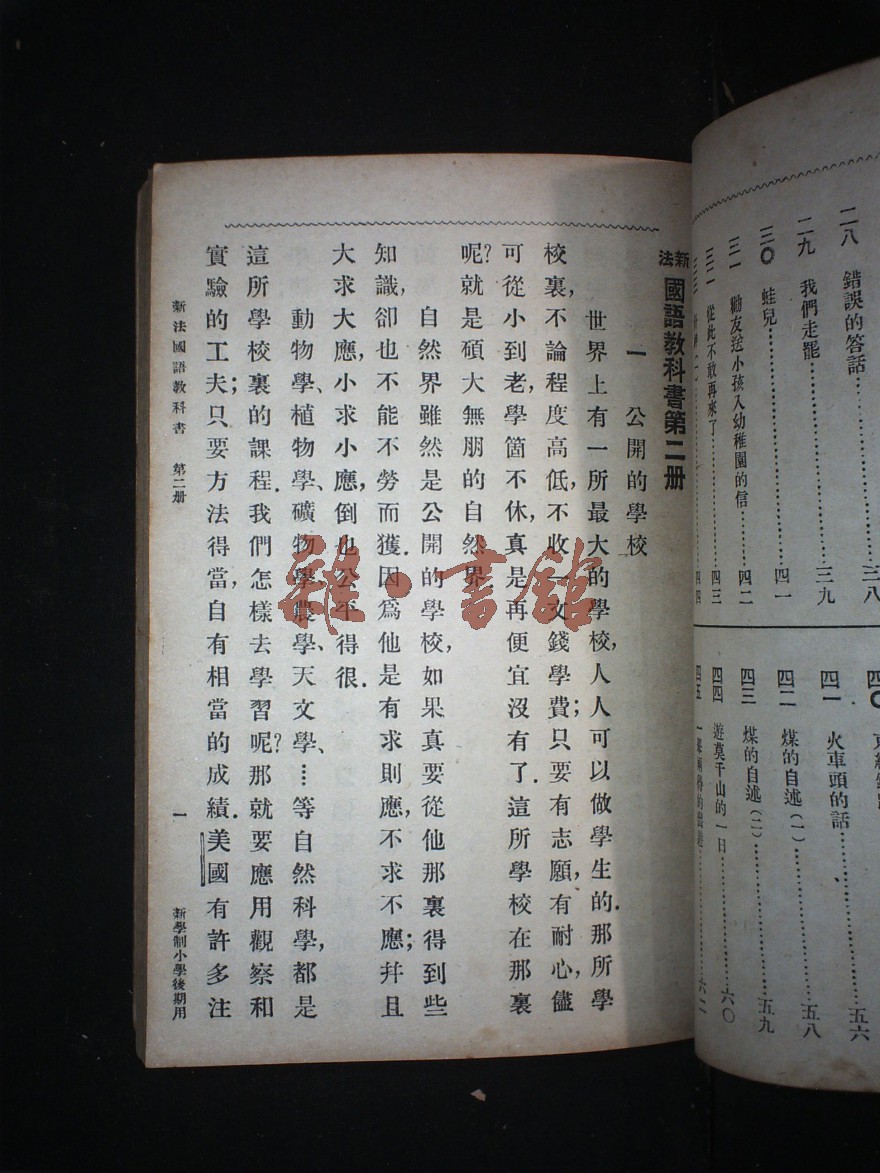 二八 錯誤的答話 三八
二九 我們走罷 三九
三〇 蛙兒 四一
三一 勸友送小孩入幼稚園的信 四二
三二 從此不敢再來了 四三
四四
四一 火車頭的話 五六
四二 煤的自述(一) 五八
四三 煤的自述(二) 五九
四四 遊莫干山的一日 六〇
四五 六二
新法 國語教科書第二册
一 公開的學校
世界上有一所最大的學校,人人可以做學生的.那所學
校裏,不論程度高低,不收一文錢學費;只要有志願,有耐心,儘
可從小到老,學箇不休,真是再便宜沒有了.這所學校在那裏
呢?就是碩大無朋的自然界.
自然界雖然是公開的學校,如果真要從他那裏得到些
知識,卻也不能不勞而獲.因爲他是有求則應,不求不應;幷且
大求大應,小求小應,倒也公平得很.
動物學、植物學、礦物學、農學、天文學、…等自然科學,都是
這所學校裏的課程.我們怎樣去學習呢?那就要應用觀察和
實驗的工夫;只要方法得當,自有相當的成績.美國有許多注
新法國語教科書 第二册 一 新學制小學後期用
雜·書館